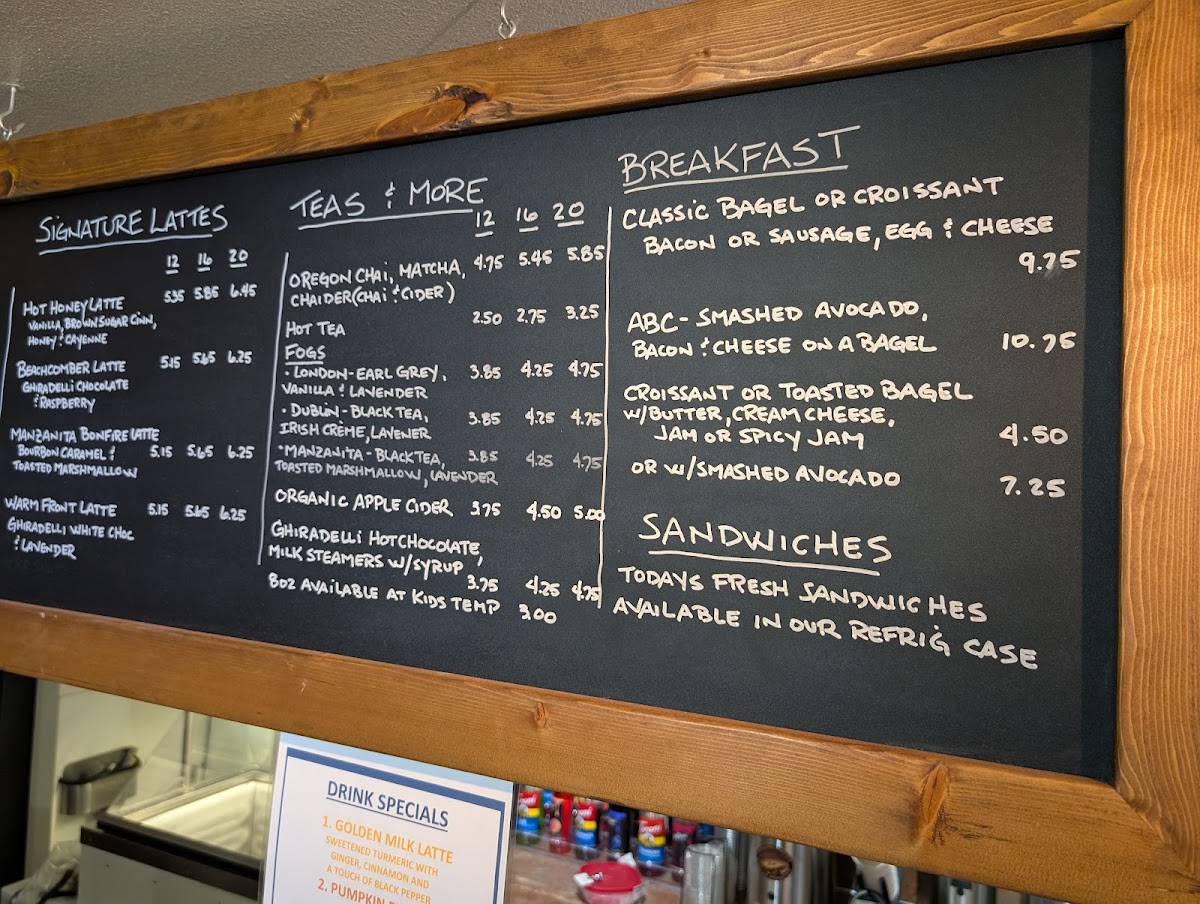 SIGNATURE LATTES
12 16 20
HOT HONEY LATTE 5.35 5.85 6.45
VANILLA, BROWN SUGAR CINN,
HONEY & CAYENNE
BEACHCOMBER LATTE 5.15 5.65 6.25
GHIRADELLI CHOCOLATE
& RASPBERRY
MANZANITA BONFIRE LATTE
BOURBON CARAMEL & 5.15 5.65 6.25
TOASTED MARSHMALLOW
WARM FRONT LATTE 5.15 5.65 6.25
GHIRADELLI WHITE CHOC
& LAVENDER
TEAS & MORE
12 16 20
OREGON CHAI, MATCHA, 4.75 5.45 5.85
CHAIDER (CHAI & CIDER)
HOT TEA 2.50 2.75 3.25
FOGS
• LONDON - EARL GREY, 3.85 4.25 4.75
VANILLA & LAVENDER
• DUBLIN - BLACK TEA, 3.85 4.25 4.75
IRISH CRÈME, LAVENER
• MANZANITA - BLACK TEA, 3.85 4.25 4.75
TOASTED MARSHMALLOW, LAVENDER
ORGANIC APPLE CIDER 3.75 4.50 5.00
GHIRADELLI HOT CHOCOLATE,
MILK STEAMERS W/SYRUP 3.75 4.25 4.75
8OZ AVAILABLE AT KIDS TEMP 3.00
BREAKFAST
CLASSIC BAGEL OR CROISSANT
BACON OR SAUSAGE, EGG & CHEESE
9.75
ABC - SMASHED AVOCADO,
BACON & CHEESE ON A BAGEL 10.75
CROISSANT OR TOASTED BAGEL
W/BUTTER, CREAM CHEESE,
JAM OR SPICY JAM 4.50
OR W/SMASHED AVOCADO 7.25
SANDWICHES
TODAYS FRESH SANDWICHES
AVAILABLE IN OUR REFRIG CASE
DRINK SPECIALS
1. GOLDEN MILK LATTE
SWEETENED TURMERIC WITH
GINGER, CINNAMON AND
A TOUCH OF BLACK PEPPER
2. PUMPKIN